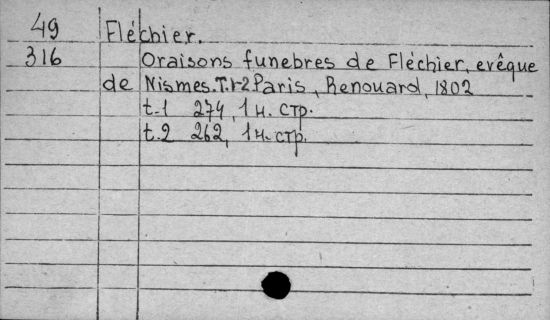 49 Fléchier.
316 Oraisons funebres de Fléchier, evêque
de Nismes. T.1-2 Paris, Renouard, 1802
t.1 274, 1 н. стр.
t.2 262, 1 н. стр.